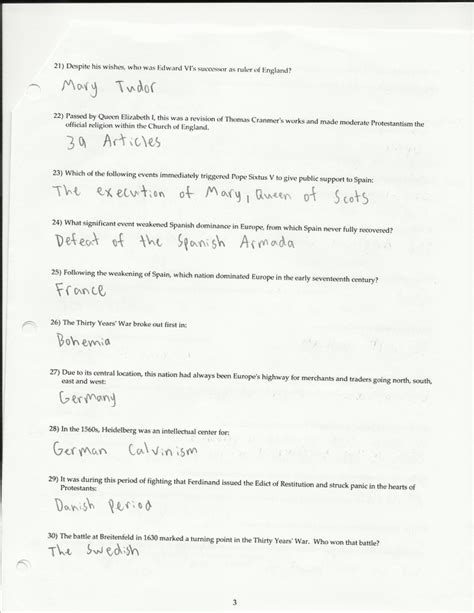 21) Despite his wishes, who was Edward VI's successor as ruler of England?
Mary Tudor
22) Passed by Queen Elizabeth I, this was a revision of Thomas Cranmer's works and made moderate Protestantism the
official religion within the Church of England.
39 Articles
23) Which of the following events immediately triggered Pope Sixtus V to give public support to Spain:
The execution of Mary, Queen of Scots
24) What significant event weakened Spanish dominance in Europe, from which Spain never fully recovered?
Defeat of the Spanish Armada
25) Following the weakening of Spain, which nation dominated Europe in the early seventeenth century?
France
26) The Thirty Years' War broke out first in:
Bohemia
27) Due to its central location, this nation had always been Europe's highway for merchants and traders going north, south,
east and west:
Germany
28) In the 1560s, Heidelberg was an intellectual center for:
German Calvinism
29) It was during this period of fighting that Ferdinand issued the Edict of Restitution and struck panic in the hearts of
Protestants:
Danish Period
30) The battle at Breitenfeld in 1630 marked a turning point in the Thirty Years' War. Who won that battle?
The Swedish
3